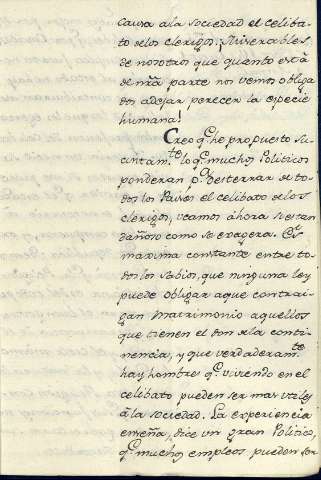 causa a la sociedad el celiba-
to delos clerigos. ¡Miserables
de nosotros que quanto està
de nrã parte nos vemos obliga
dos adejar perecer la especie
humana!
Creo q.e he propuesto su-
cintam.te lo q.e muchos Politicos
ponderan p.a desterrar de to-
dos los Paises el celibato de los
clerigos, veamos àhora si es tan
dañoso como se exagera. Es
màxima constante entre to-
dos los sabios, que ninguna ley
puede obligar aque contrai-
gan Matrimonio aquellos
que tienen el don dela conti-
nencia, y que verdaderam.te
hay hombres q.e viviendo en el
celibato pueden ser mas utiles
à la sociedad. La experiencia
enseña, dice un gran Politico,
q.e muchos empleos pueden ser